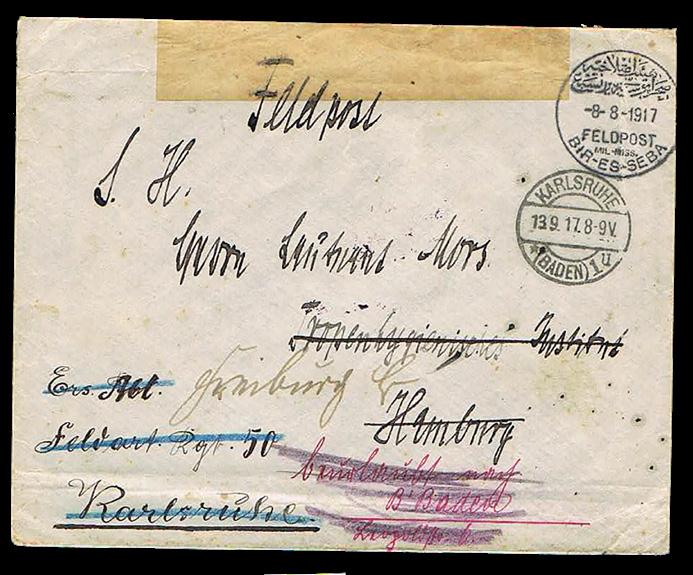 Feldpost
-8-8-1917
FELDPOST
MIL.-MISS.
BIR-ES-SEBA
KARLSRUHE
13.9.17.8-9V.
*(BADEN)1u
S. H.
Herrn Leutnant Mors
Tropenhygienisches Institut
Freiburg
Ers. Abt.
Hamburg
Feldart. Rgt. 50
beurlaubt nach
B'Baden
Karlsruhe.